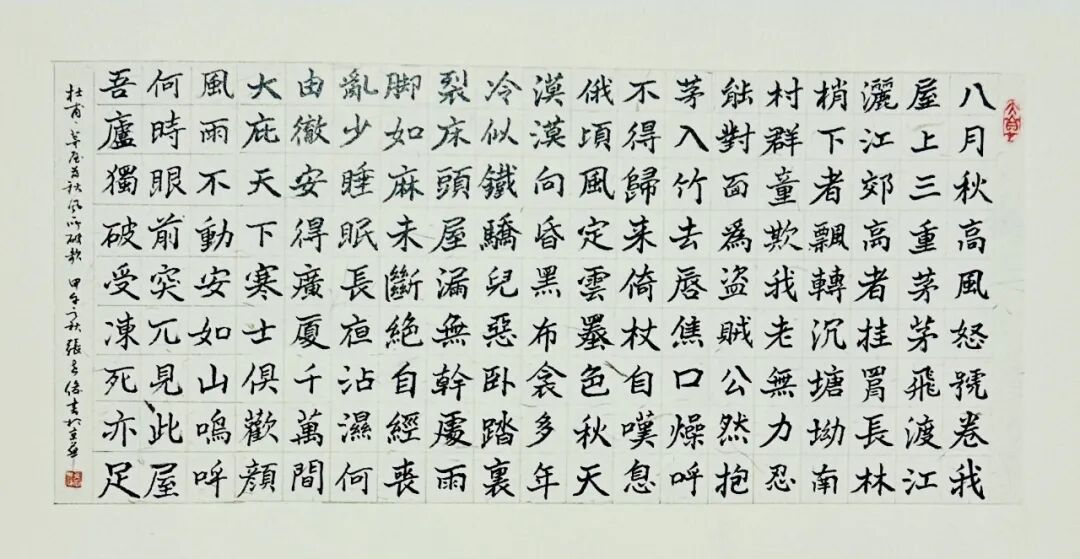 八月秋高風怒號卷我
屋上三重茅茅飛渡江
灑江郊高者挂罥長林
梢下者飄轉沉塘坳南
村群童欺我老無力忍
能對面為盜賊公然抱
茅入竹去唇焦口燥呼
不得歸来倚杖自嘆息
俄頃風定雲墨色秋天
漠漠向昏黑布衾多年
冷似鐵驕兒惡卧踏裏
裂床頭屋漏無幹處雨
脚如麻未斷絶自經喪
亂少睡眠長夜沾濕何
由徹安得廣厦千萬間
大庇天下寒士俱歡顔
風雨不動安如山嗚呼
何時眼前突兀見此屋
吾廬獨破受凍死亦足
杜甫茅屋為秋風所破歌 甲午秋 張書於京華